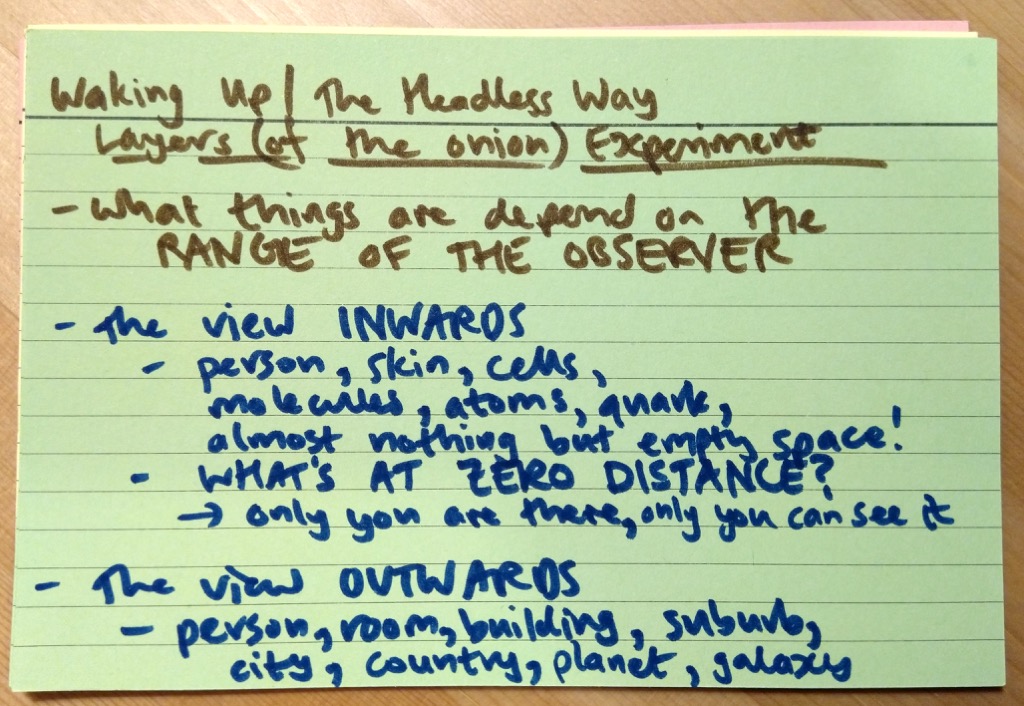 Waking Up / The Headless Way
Layers (of the onion) Experiment
- What things are depend on the
RANGE OF THE OBSERVER
- The view INWARDS
- person, skin, cells,
molecules, atoms, quark,
almost nothing but empty space!
- WHAT'S AT ZERO DISTANCE?
→ only you are there, only you can see it
- The view OUTWARDS
- person, room, building, suburb,
city, country, planet, galaxy